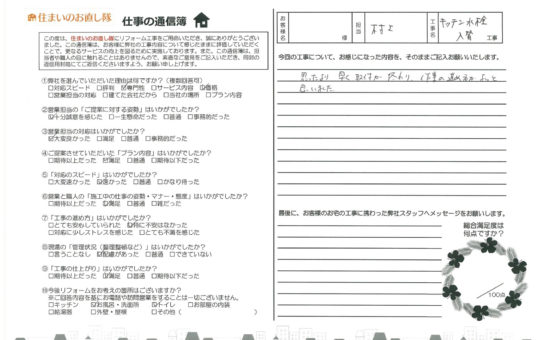 住まいのお直し隊
仕事の通信簿
この度は、住まいのお直し隊にリフォーム工事をご用命いただき、誠にありがとうございました。この通信簿は、お客様に弊社の工事内容について感じたままに評価していただくことで、更なるサービスの向上を図るために実施しております。また、この通信簿は、担当者や職人の目に触れることはありませんので、率直なご意見をご記入いただき、同封の返信用封筒にてご返信くださいますよう、お願い申し上げます。
①弊社を選んでいただいた理由は何ですか?(複数回答可)
□対応スピード □評判 ☑専門性 □サービス内容 ☑価格
□営業担当の対応 □建てた会社だから □当社の場所 □プラン内容
②営業担当の「ご提案に対する姿勢」はいかがでしたか?
☑十分誠意を感じた □一生懸命だった □普通 □事務的だった
③営業担当の対応はいかがでしたか?
☑大変良かった □満足 □普通 □事務的だった
④ご提案させていただいた「プラン内容」はいかがでしたか?
□期待以上だった ☑満足 □普通 □期待以下だった
⑤「対応のスピード」はいかがでしたか?
□大変速かった ☑良かった □普通 □かなり待った
⑥営業と職人の「施工中の仕事の姿勢・マナー・態度」はいかがでしたか?
□期待以上だった ☑満足 □普通 □雑だった
⑦「工事の進め方」はいかがでしたか?
□とても安心していられた ☑特に不安はなかった
□対応に少しストレスを感じた □とても不満を感じた
⑧現場の「管理状況(整理整頓など)」はいかがでしたか?
□言うことなし ☑配慮があった □普通 □できていない
⑨「工事の仕上がり」はいかがでしたか?
□期待以上だった ☑満足 □普通 □期待以下だった
⑩今後リフォームをお考えの箇所はございますか?
※ご回答内容を基にお電話や訪問営業をすることは一切ございません。
□キッチン ☑お風呂・洗面所 ☑トイレ □お部屋の内装
□給湯器 □外壁・屋根 □その他( )
お客様名
担当
工事名
キッチン水栓
入替
工事
今回の工事について、お感じになった内容を、そのままご記入お願いいたします。
思ったより 早く 取付が 終わり
思いました
最後に、お客様のお宅の工事に携わった弊社スタッフへメッセージをお願いします。
総合満足度は
何点ですか?
/100点